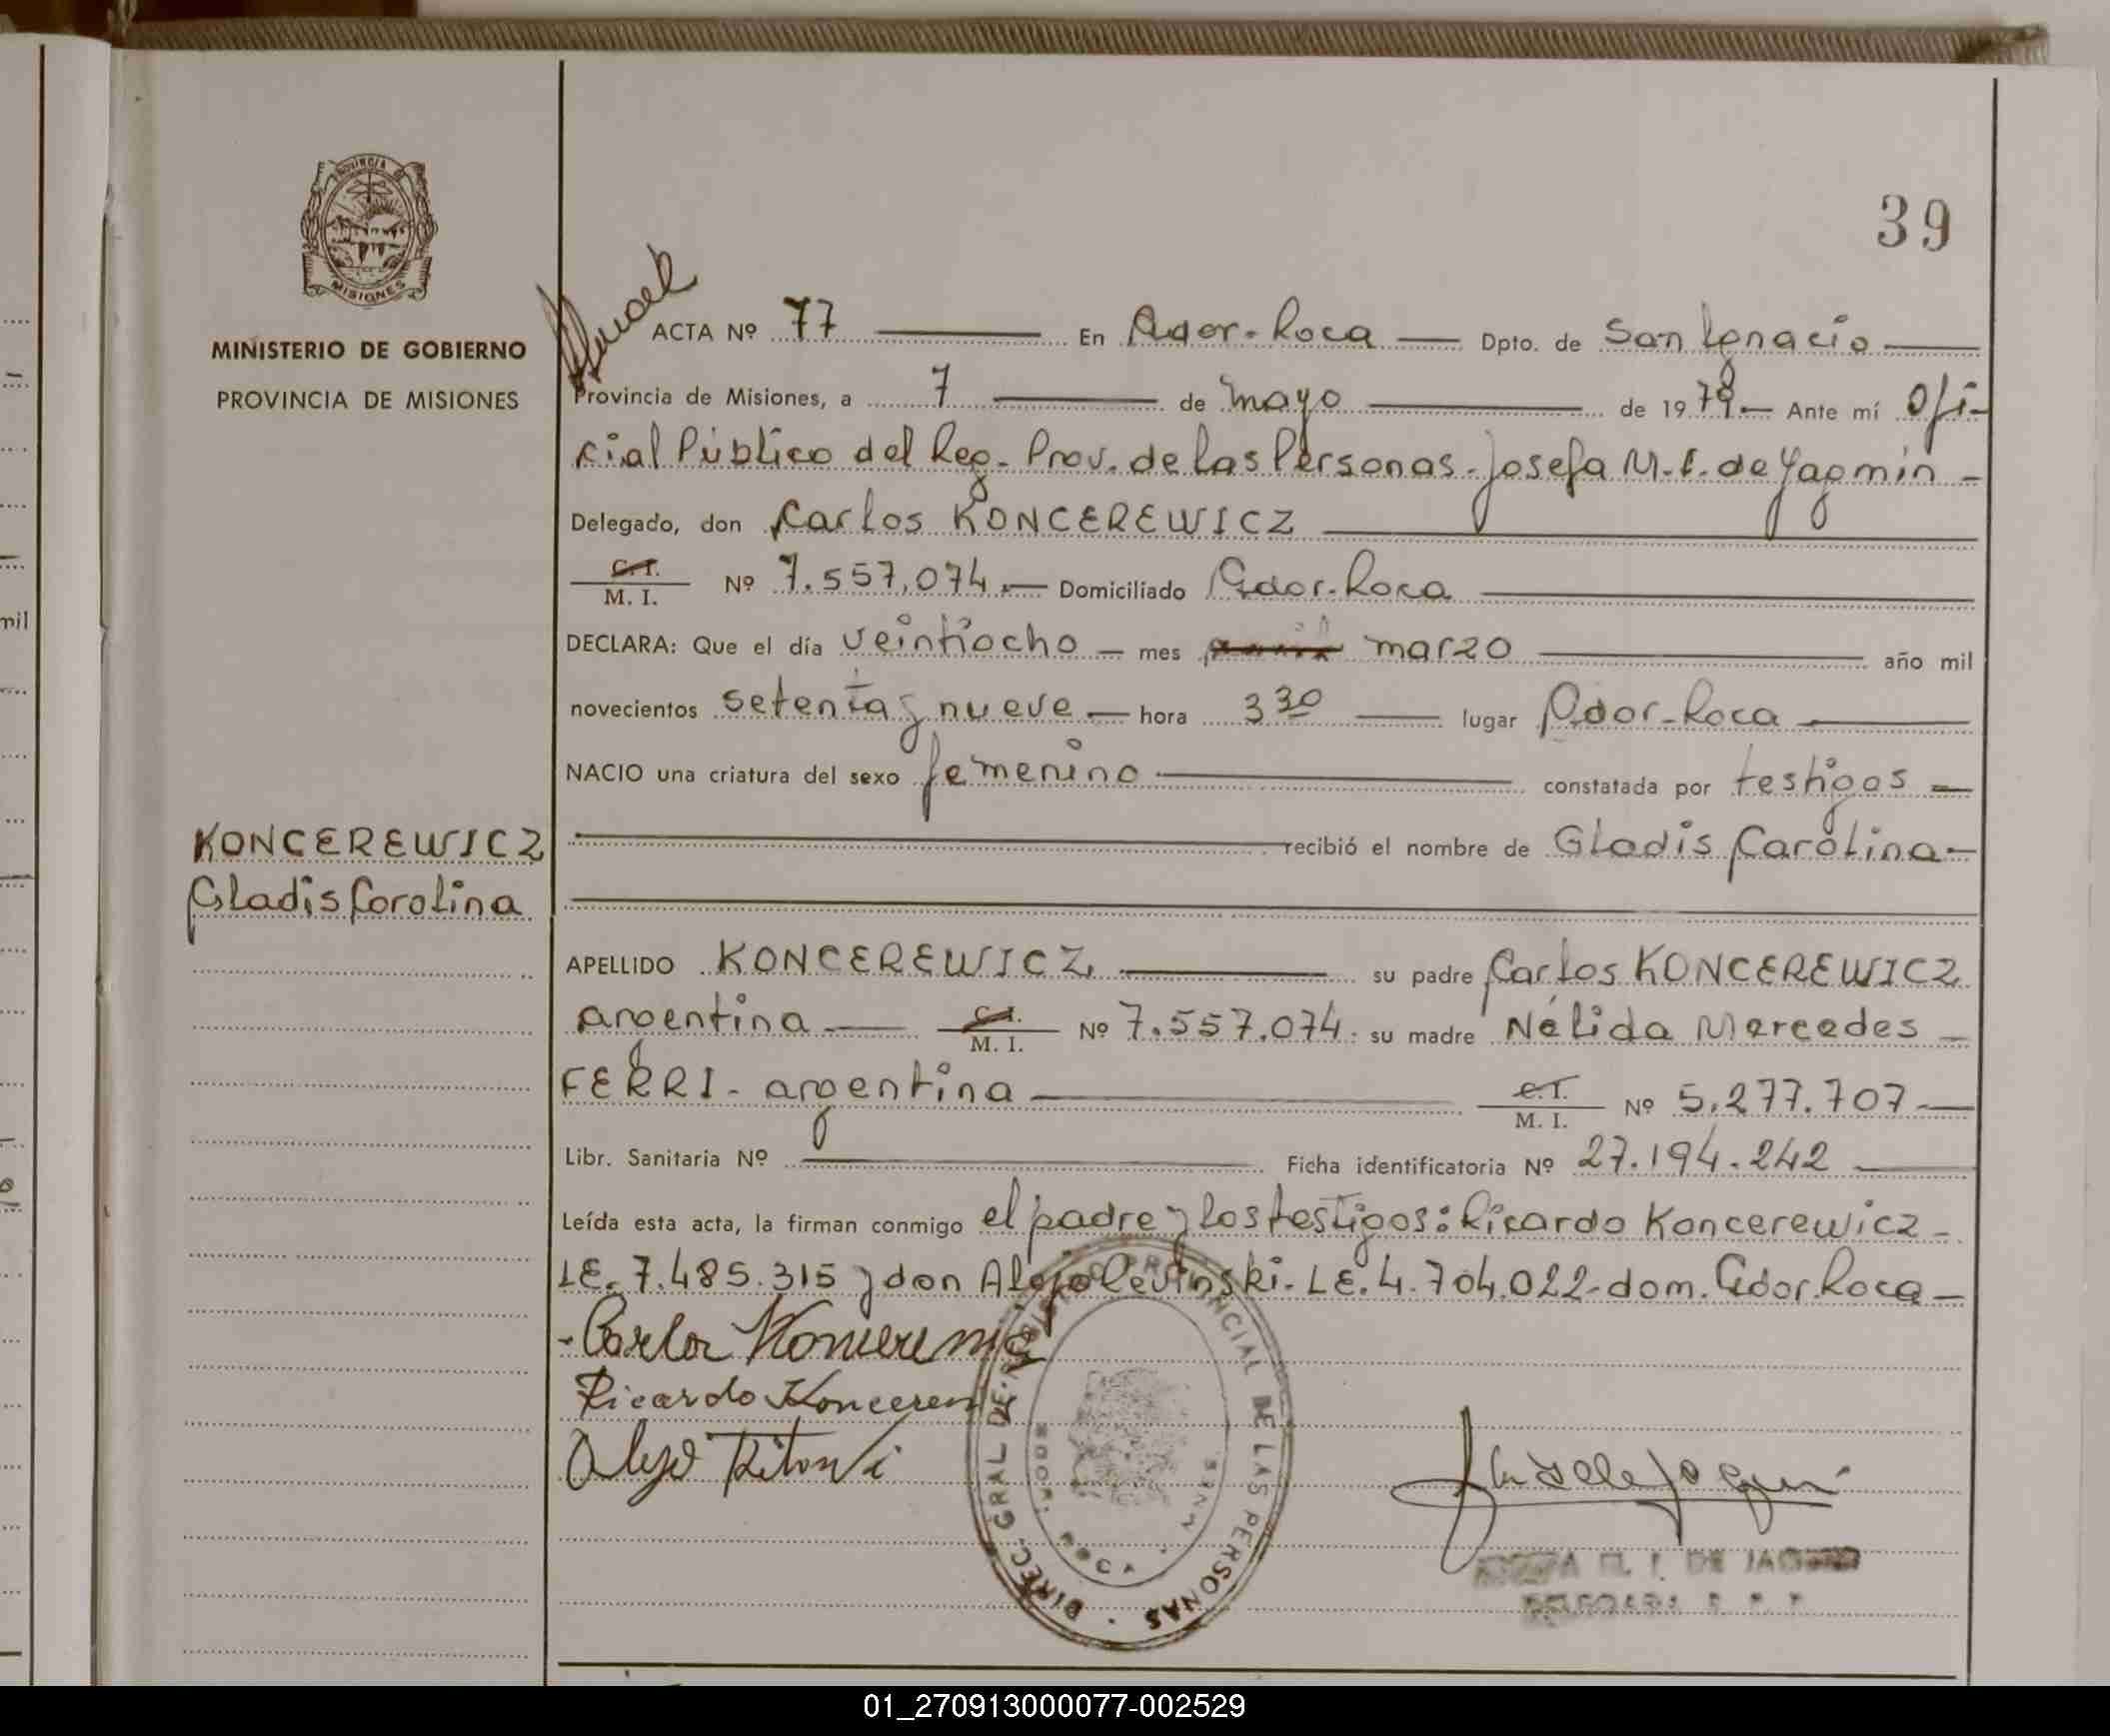 PROVINCIA DE
MISIONES
MINISTERIO DE GOBIERNO
PROVINCIA DE MISIONES
39
ACTA Nº 77 En Gdor. Roca Dpto. de San Ignacio
Provincia de Misiones, a 7 de mayo de 1979 Ante mí Ofi-
cial Público del Reg. Prov. de las Personas. Josefa M. I. de Yagmin
Delegado, don Carlos KONCEREWICZ
C. I.
M. I. Nº 7.557.074 Domiciliado Gdor. Roca
DECLARA: Que el día veintiocho mes marzo año mil
novecientos setenta y nueve hora 3 30 lugar Gdor. Roca
NACIO una criatura del sexo femenino constatada por testigos
recibió el nombre de Gladis Carolina
KONCEREWICZ
Gladis Carolina
APELLIDO KONCEREWICZ su padre Carlos KONCEREWICZ
argentina C. I.
M. I. Nº 7.557.074 su madre Nélida Mercedes
FERRI - argentina C. I.
M. I. Nº 5.277.707
Libr. Sanitaria Nº Ficha identificatoria Nº 27.194.242
Leída esta acta, la firman conmigo el padre y los testigos: Ricardo Koncerewicz
LE. 7.485.315 y don Alejo Levinski. LE. 4.704.022 - dom. Gdor. Roca
Carlos
Ricardo
DIREC. GRAL DE REGISTRO PROVINCIAL DE LAS PERSONAS
ROCA
M. I. DE
mil
01_270913000077-002529